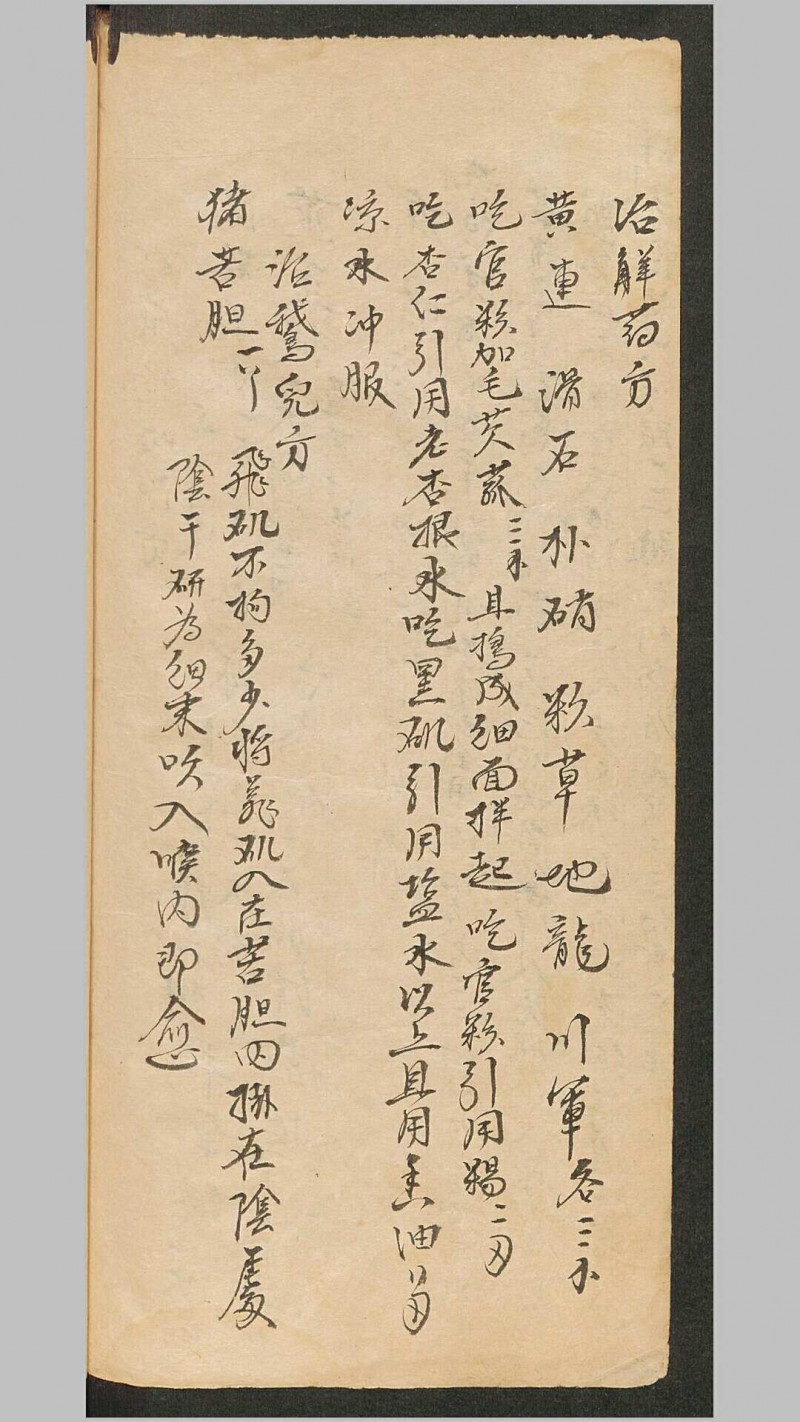 治解药方
黄連 滑石 朴硝 粉草 地龍 川軍 各三
吃官粉加毛 三 且搗成細面拌起吃官粉引用 二
吃杏仁引用老杏根水吃黑矾引用塩水以上且用香油
凉水冲服
治鵝兒方
猪苦胆一个
飛矾不拘多少将飛矾入在苦胆内掛在陰處
陰干研为細末吹入喉内即愈